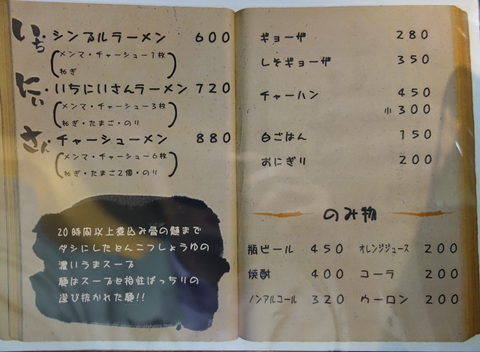 いち シンプルラーメン 600
(メンマ・チャーシュー1枚
ねぎ)
にい いちにいさんラーメン 720
(メンマ・チャーシュー3枚
ねぎ・たまご・のり)
さん チャーシューメン 880
(メンマ・チャーシュー6枚
ねぎ・たまご2個・のり)
20時間以上煮込み骨の髄まで
ダシにしたとんこつしょうゆの
濃いうまスープ
麺はスープと相性ばっちりの
選び抜かれた麺!!
ギョーザ 280
しそギョーザ 350
チャーハン 450
小300
白ごはん 150
おにぎり 200
のみ物
瓶ビール 450 オレンジジュース 200
焼酎 400 コーラ 200
ノンアルコール 320 ウーロン 200